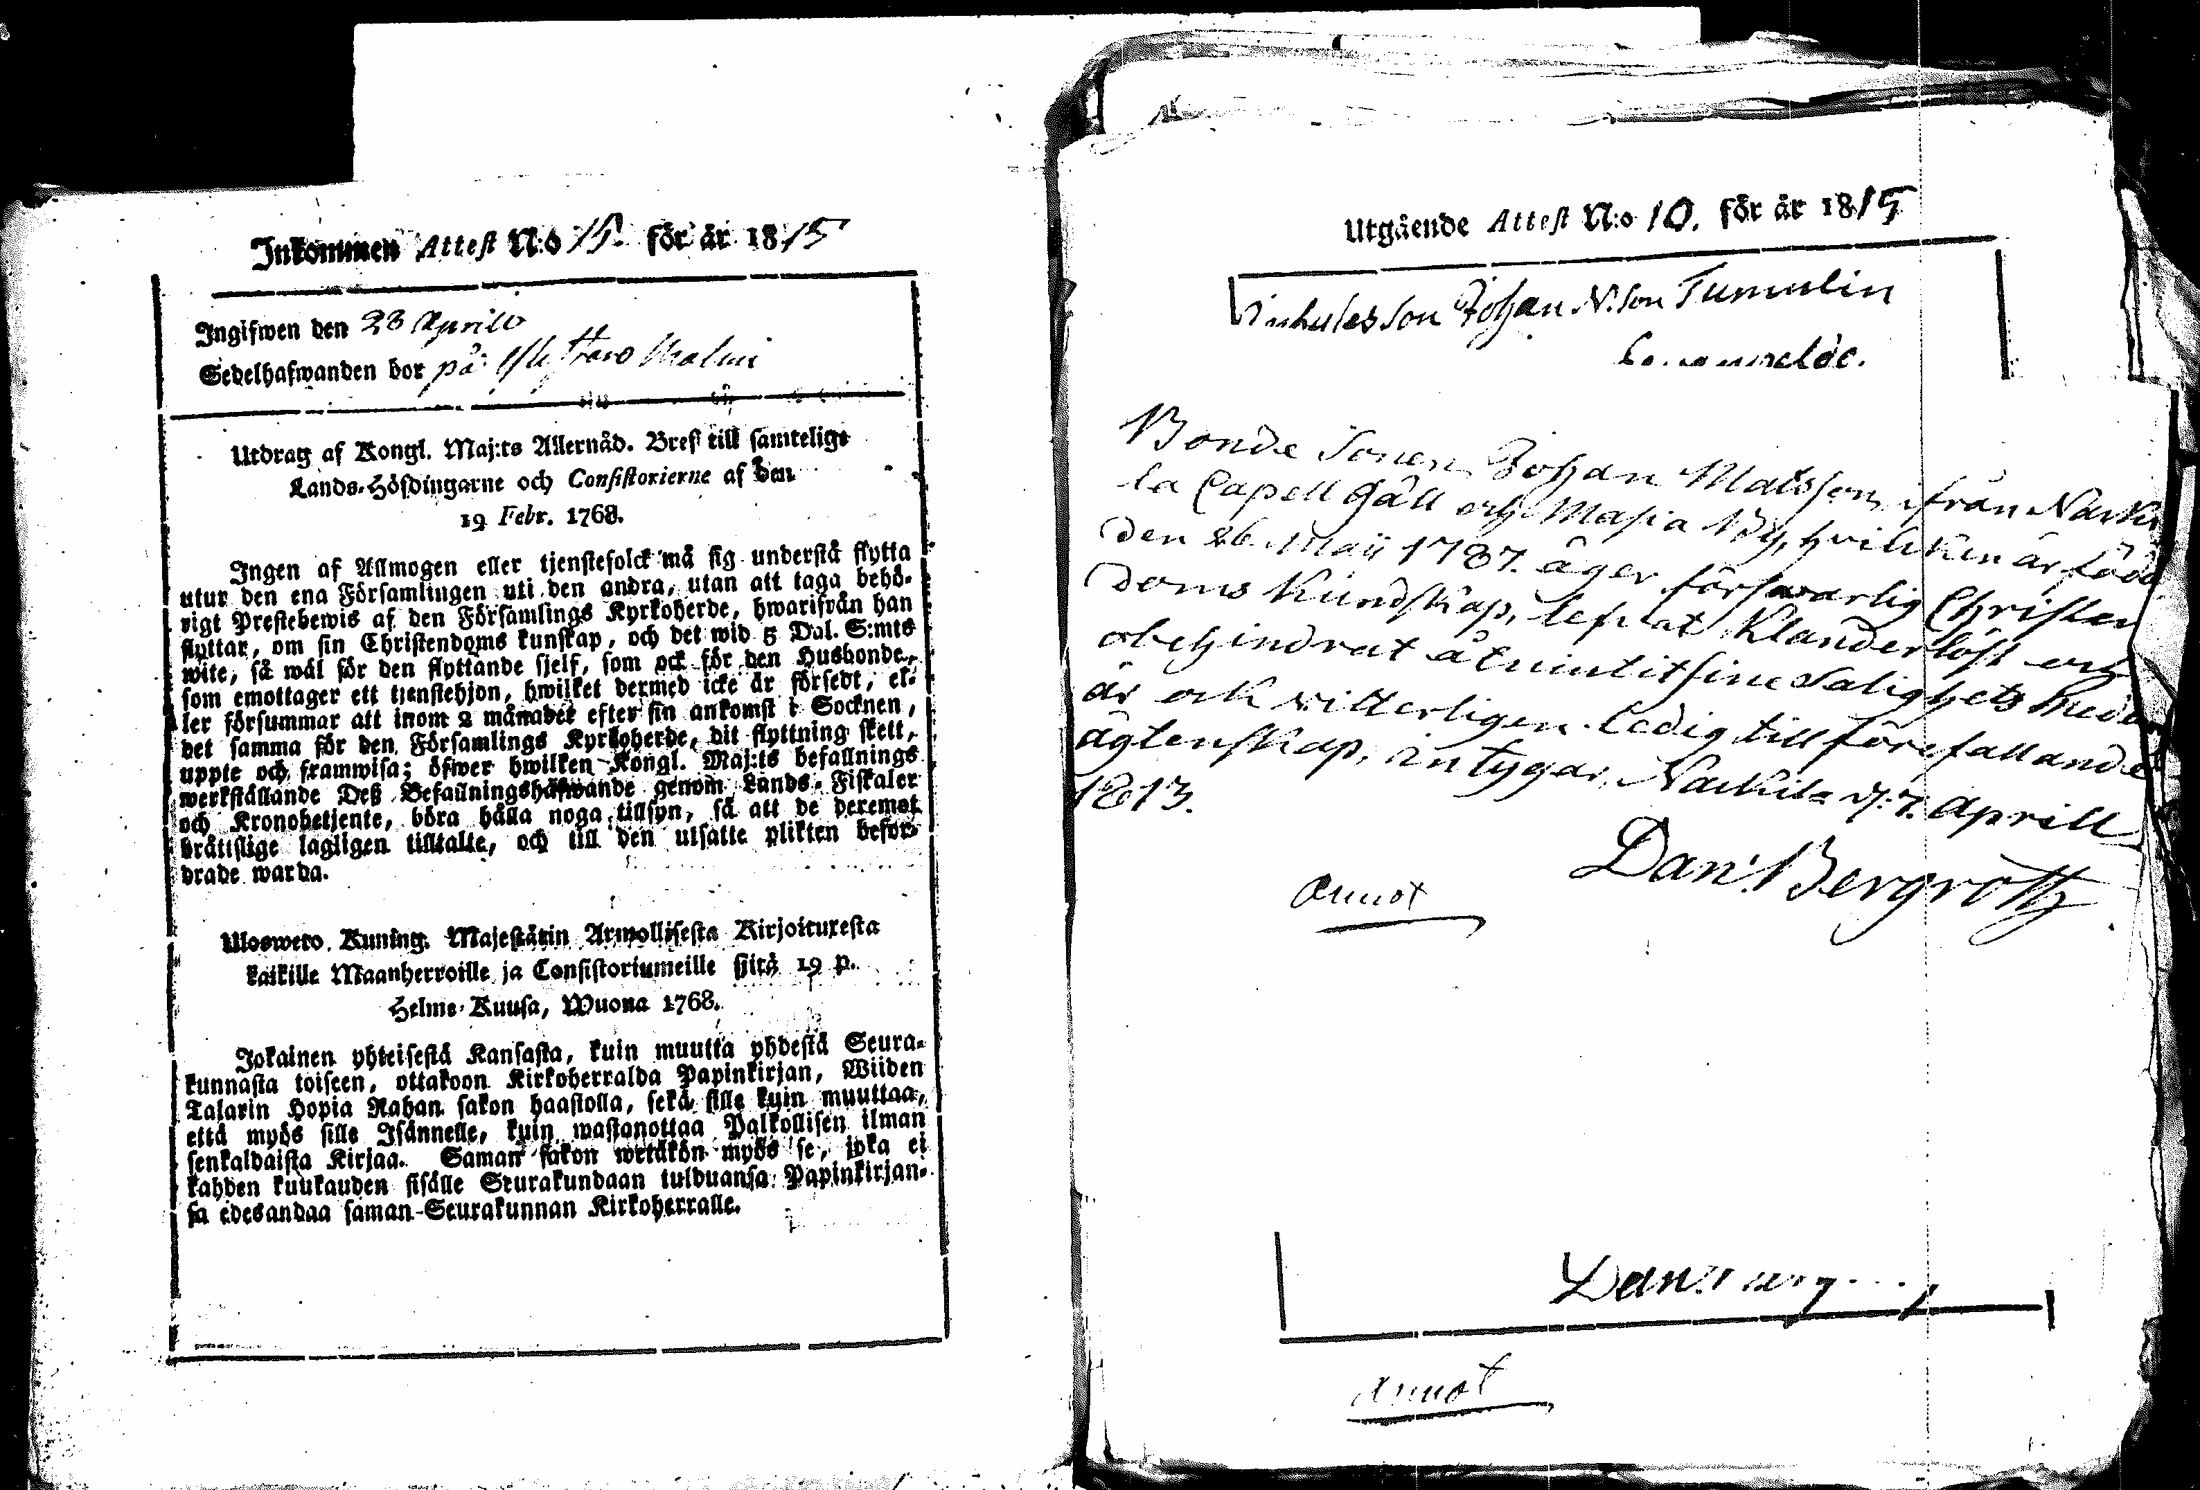 Inkommen Attest N:o 15. för år 1815
Ingifwen den 23 Aprill
Sedelhafwanden bor på Malmi
Utdrag af Kongl. Maj:ts Allernåd. Bref till samtelige
Lands-Höfdingarne och Consistorierne af den
19 Febr. 1768.
Ingen af Allmogen eller tjenstefolck må sig understå flytta
utur den ena Församlingen uti den andra, utan att taga behö-
rigt Prestebewis af den Församlings Kyrkoherde, hwarifrån han
flyttar, om sin Christendoms kunskap, och det wid 5 Dal. S:mts
wite, så wäl för den flyttande sjelf, som ock för den Husbonde,
som emottager ett tjenstehjon, hwilket dermed icke är försedt, el-
ler försummar att inom 2 månader efter sin ankomst i Socknen,
det samma för den Församlings Kyrkoherde, dit flyttning skett,
uppte och framwisa; öfwer hwilken Kongl. Maj:ts befallnings
werkställande Deß Befallningshafwande genom Lands-Fiskaler
och Kronobetjente, böra hålla noga tillsyn, så att de deremot
brättslige lagligen tilltalte, och till den utsatte plikten befor-
drade warda.
Ulosweto Kuning. Majestätin Armollisesta Kirjoituxesta
kaikille Maanherroille ja Consistoriumeille siitä 19 p.
Helme-Kuusa, Wuona 1768.
Jokainen yhteisestä Kansasta, kuin muutta yhdestä Seura-
kunnasta toiseen, ottakoon Kirkoherralda Papinkirjan, Wiiden
Talarin Hopia Rahan sakon haastolla, sekä sille kuin muuttaa,
että myös sille Isännelle, kuin wastanottaa Palkollisen ilman
senkaldaista Kirjaa. Saman sakon wetäkön myös se, joka ei
kahden kuukauden sisälle Seurakundaan tulduansa Papinkirjan-
sa edesandaa saman Seurakunnan Kirkoherralle.
Utgående Attest N:o 10. för år 1815
son Johan N.son Tummelin
Bonde Sonen Johan Matsson ifrån Narki
la Capell Gäll och Masia By, hvilken är född
den 26 Maji 1787. äger försvarlig Christen
doms Kundskap, lefvat Klanderlöst och
obehindrat åtniutit sine Salighets Medel
är ock vitterligen ledig till förefallande
ägtenskap, intygar, Narkila d. 7. Aprill
1813.
Dan. Bergroth
Annot
Annot